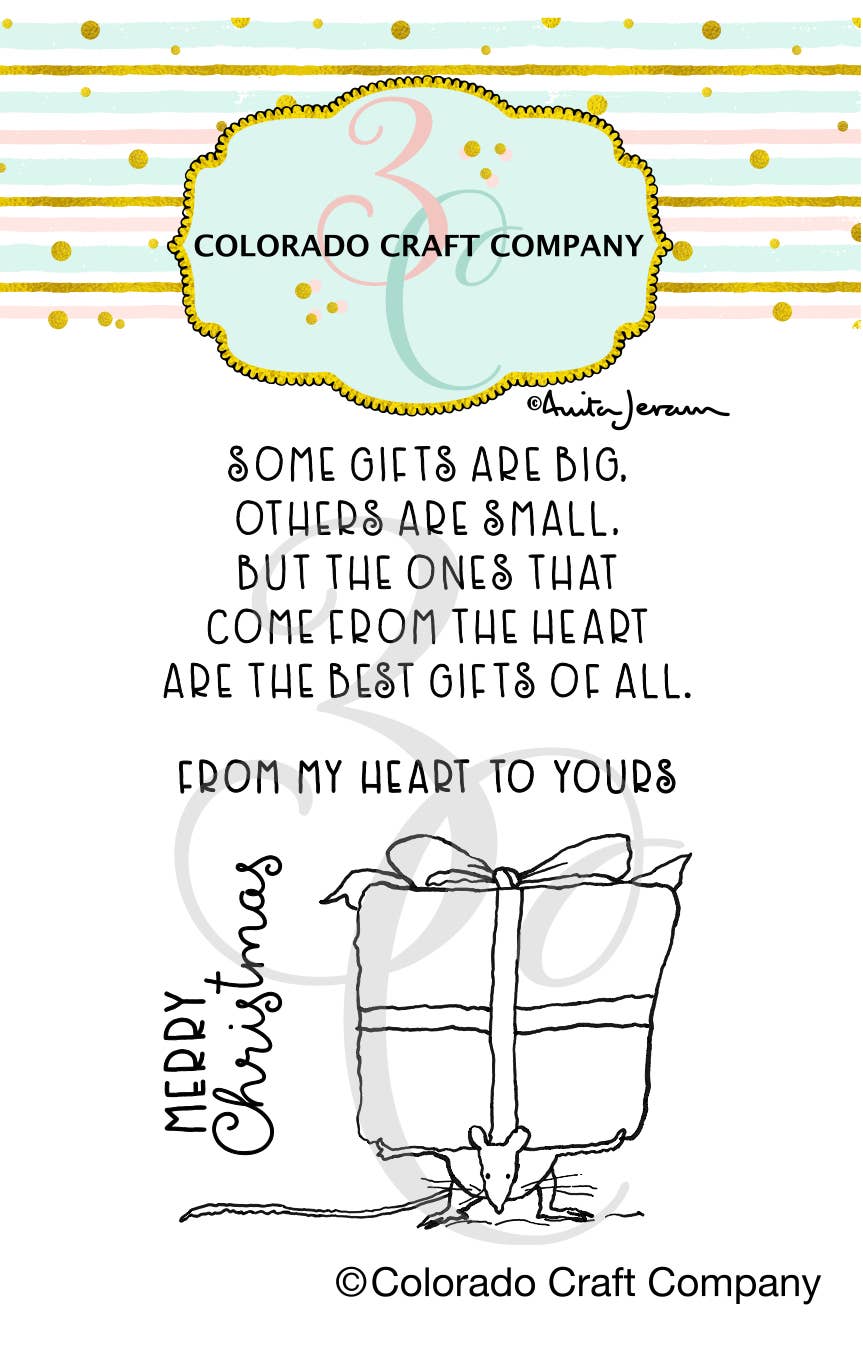 3C
COLORADO CRAFT COMPANY
©Anita Jeram
SOME GIFTS ARE BIG,
OTHERS ARE SMALL,
BUT THE ONES THAT
COME FROM THE HEART
ARE THE BEST GIFTS OF ALL.
FROM MY HEART TO YOURS
MERRY
Christmas
3Cc
©Colorado Craft Company